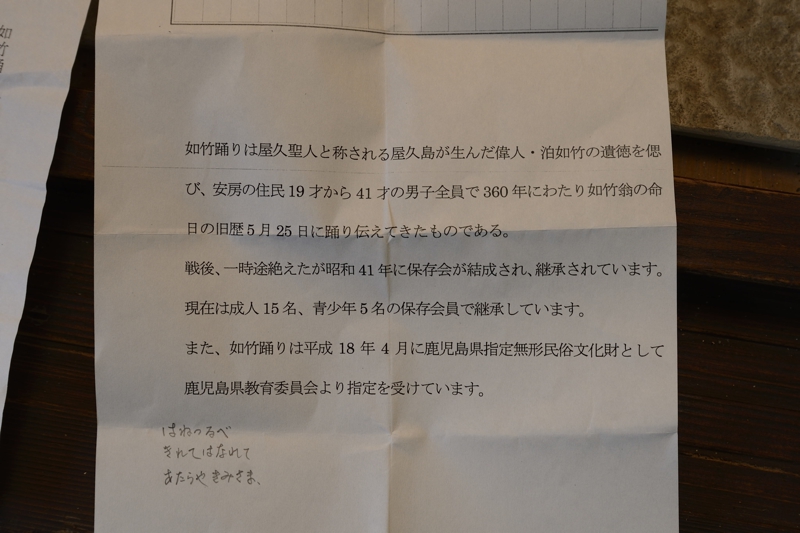 如竹踊
如竹踊りは屋久聖人と称される屋久島が生んだ偉人・泊如竹の遺徳を偲
び、安房の住民19才から41才の男子全員で360年にわたり如竹翁の命
日の旧歴5月25日に踊り伝えてきたものである。
戦後、一時途絶えたが昭和41年に保存会が結成され、継承されています。
現在は成人15名、青少年5名の保存会員で継承しています。
また、如竹踊りは平成18年4月に鹿児島県指定無形民俗文化財として
鹿児島県教育委員会より指定を受けています。
はねつるべ
きれてはなれて
あたらやきみさま、